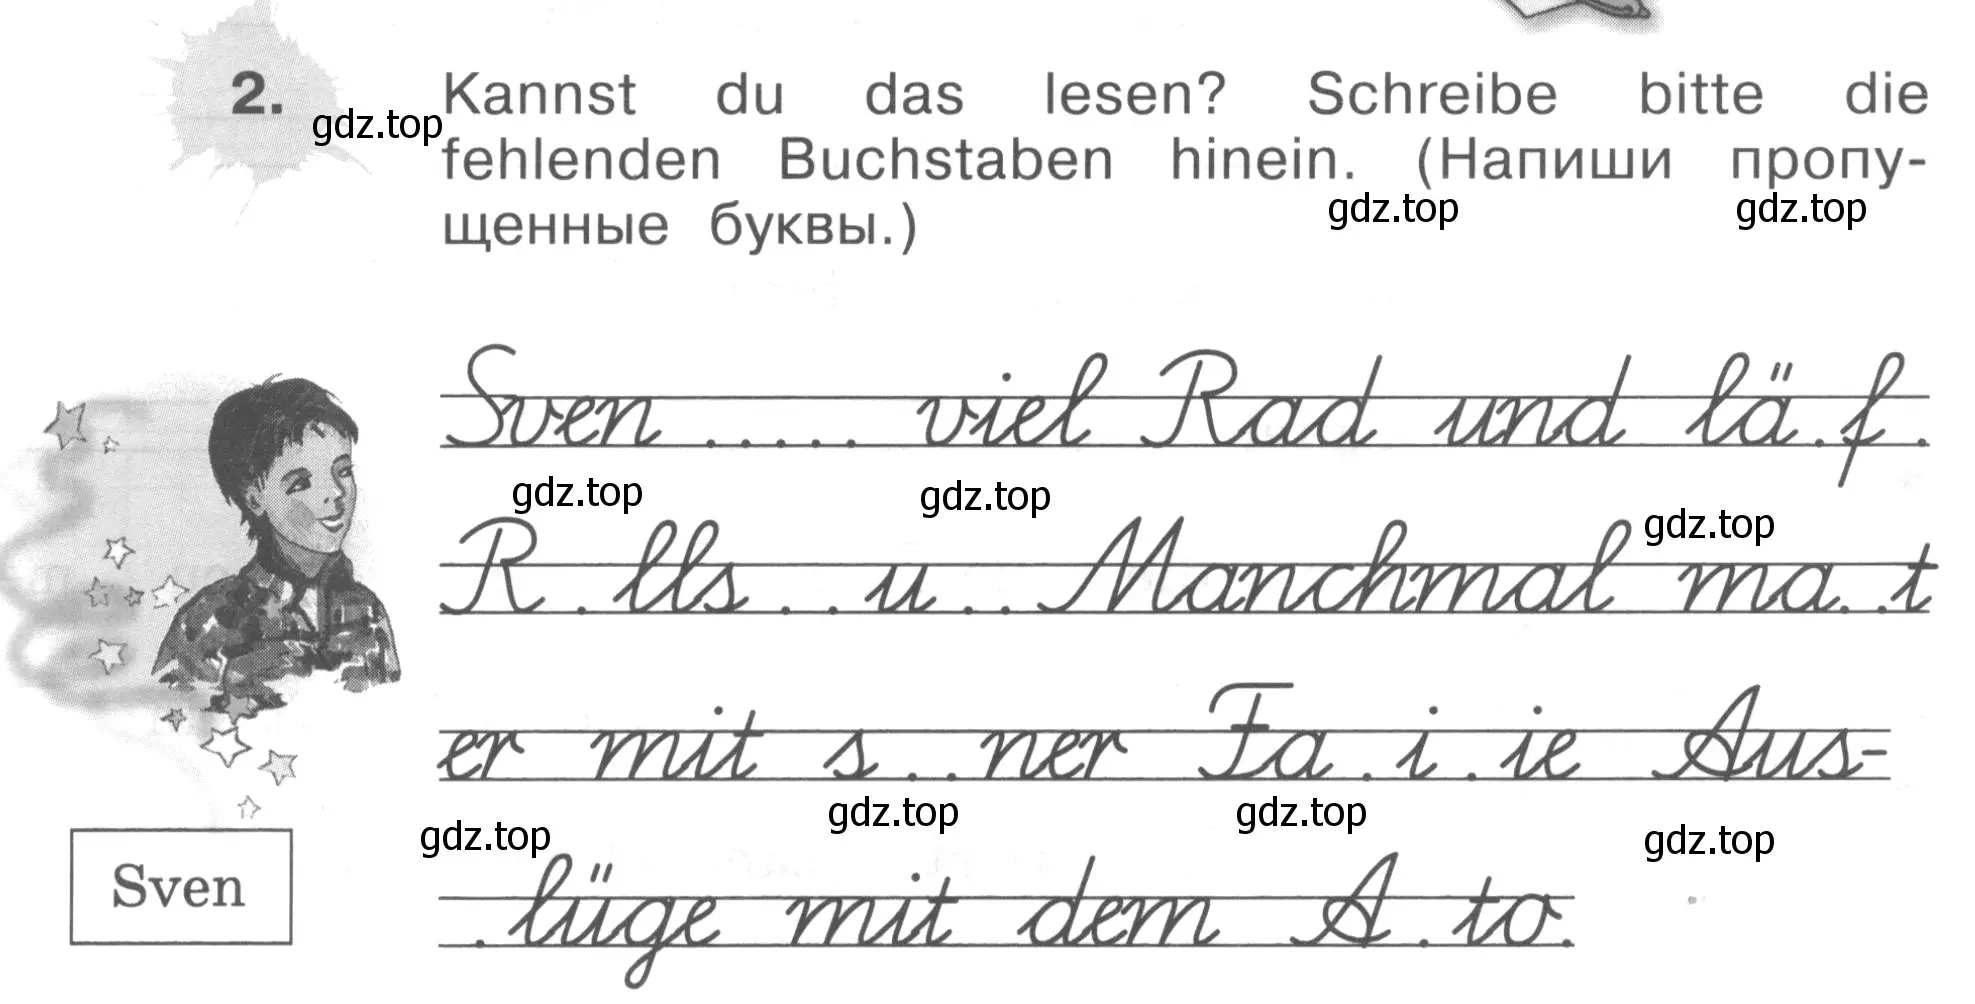 2. Kannst du das lesen? Schreibe bitte die
gdz.top
fehlenden Buchstaben hinein. (Напиши пропу-
щенные буквы.)
gdz.top
gdz.top
Sven . . . . . viel Rad und lä . f .
gdz.top
gdz.top
gdz.top
R . lls . . u . . Manchmal ma . . t
er mit s . . ner Fa . i . ie Aus-
gdz.top
gdz.top
gdz.top
gdz.top
Sven
. lüge mit dem A . to.